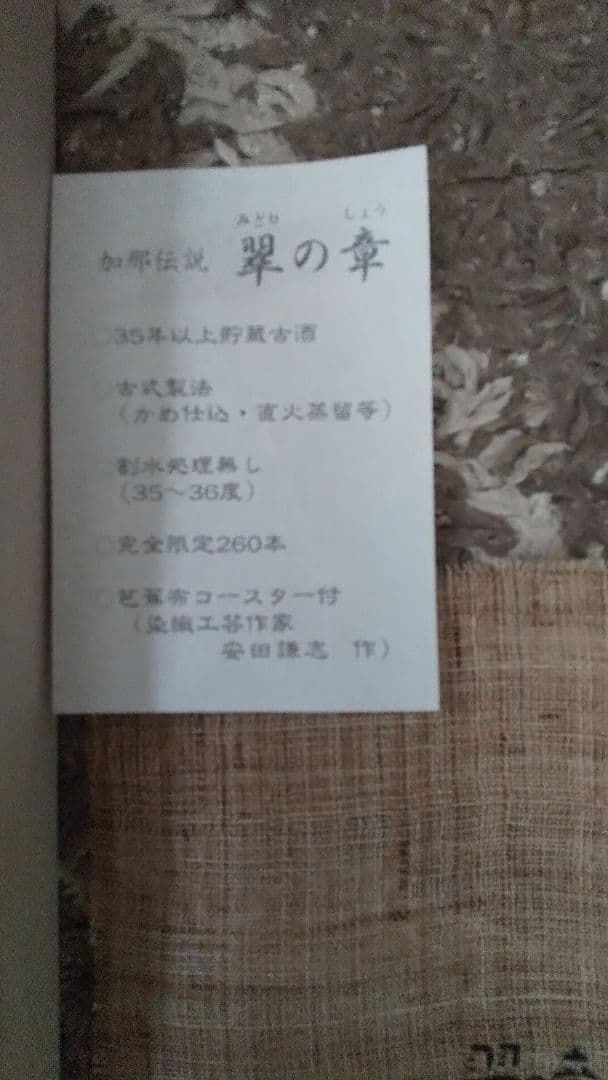 みどり しょう
加那伝説 翠の章
○35年以上貯蔵古酒
○古式製法
(かめ仕込・直火蒸留等)
○割水処理無し
(35〜36度)
○完全限定260本
○芭蕉布コースター付
(染織工芸作家
安田謙志 作)